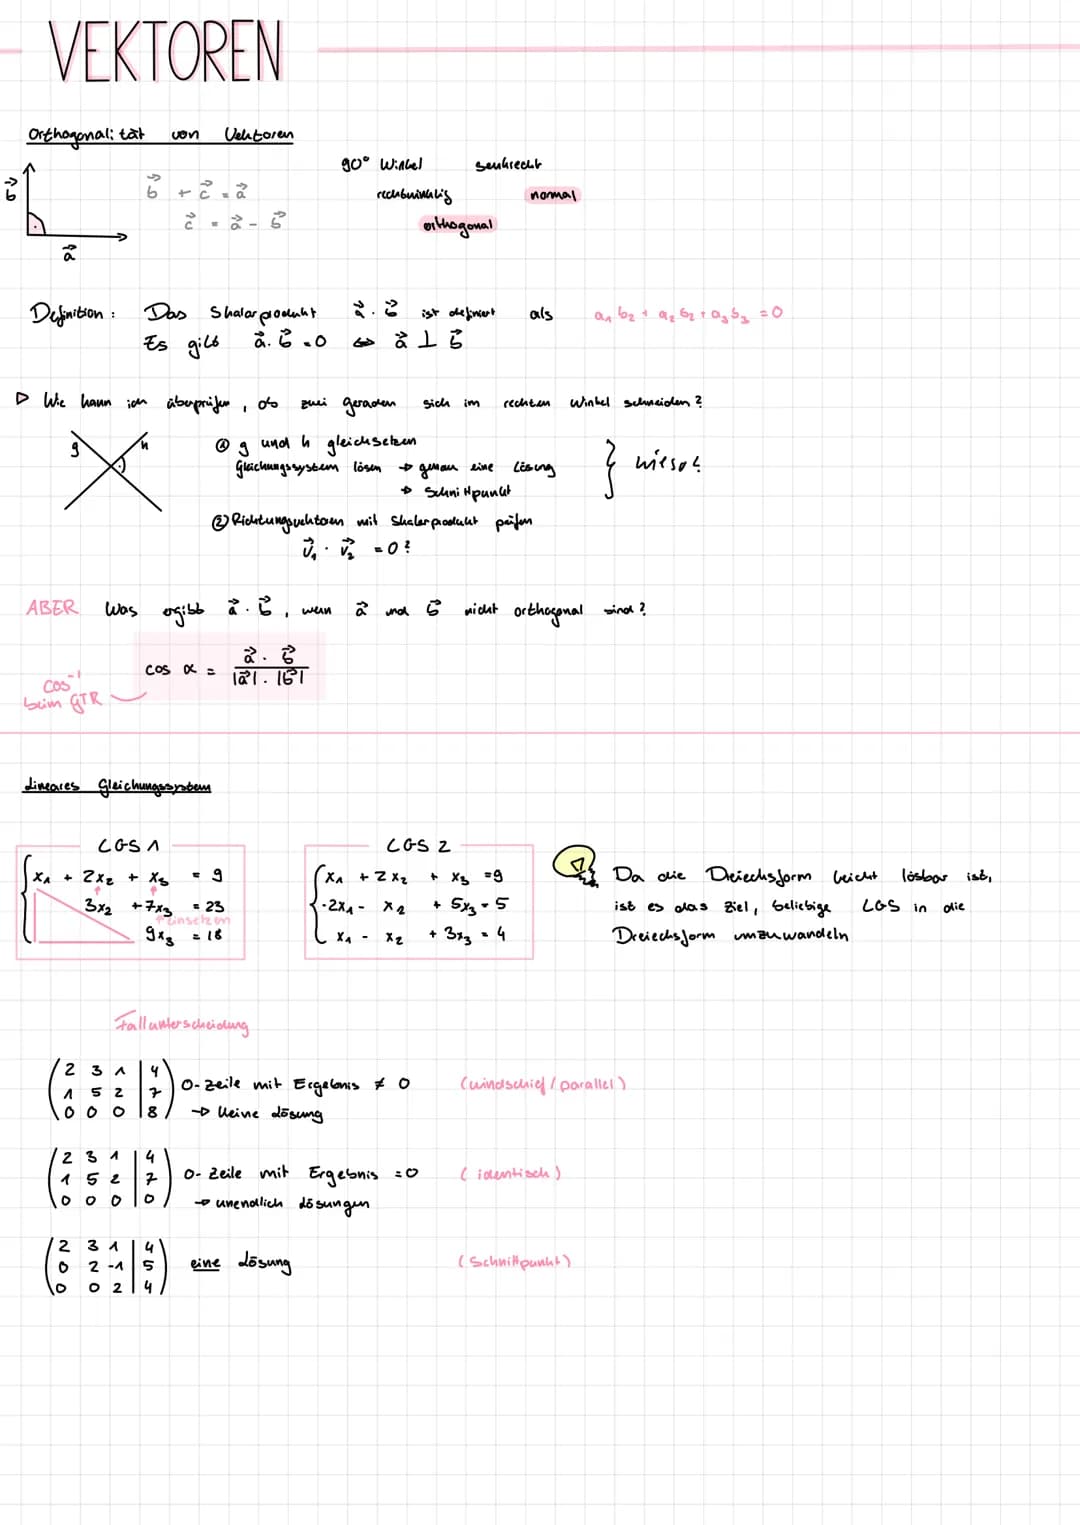 VEKTOREN
Orthogonalität von Vektoren
90° Winkel senkrecht
rechtwinklig normal
orthogonal
b⃗
a⃗
b⃗ + c⃗ = a⃗
c⃗ = a⃗ - b⃗
Definition: Das Skalarprodukt a⃗ · b⃗ ist definiert als a₁ b₂ + a₂ b₂ + a₃ b₃ = 0
Es gilt a⃗ · b⃗ = 0 ⇔ a⃗ ⊥ b⃗
▷ Wie kann ich überprüfen, ob zwei Geraden sich im rechten Winkel schneiden?
g h
① g und h gleichsetzen
Gleichungssystem lösen → genau eine Lösung
→ Schnittpunkt
} wieso?
② Richtungsvektoren mit Skalarprodukt prüfen
v⃗₁ · v⃗₂ = 0?
ABER Was ergibt a⃗ · b⃗, wenn a⃗ und b⃗ nicht orthogonal sind?
cos α = a⃗ · b⃗ / |a⃗| · |b⃗|
cos⁻¹
beim GTR
Lineares Gleichungssystem
LGS 1
x₁ + 2x₂ + x₃ = 9
3x₂ + 7x₃ = 23
einsetzen
9x₃ = 18
LGS 2
x₁ + 2x₂ + x₃ = 9
-2x₁ - x₂ + 5x₃ = 5
x₁ - x₂ + 3x₃ = 4
Da die Dreiecksform leicht lösbar ist,
ist es das Ziel, beliebige LGS in die
Dreiecksform umzuwandeln
Fallunterscheidung
2 3 1 | 4
1 5 2 | 7
0 0 0 | 8
0-Zeile mit Ergebnis ≠ 0 (windschief / parallel)
→ keine Lösung
2 3 1 | 4
1 5 2 | 7
0 0 0 | 0
0-Zeile mit Ergebnis = 0 (identisch)
→ unendlich Lösungen
2 3 1 | 4
0 2 -1 | 5
0 0 2 | 4
eine Lösung (Schnittpunkt)